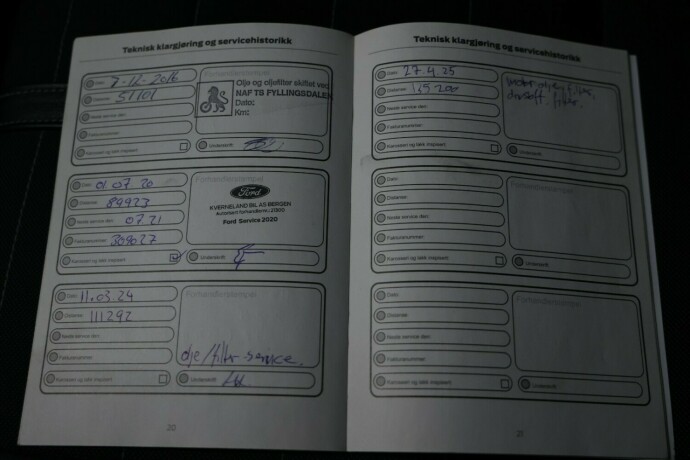 Teknisk klargjøring og servicehistorikk
Dato: 7-12-2016
Distanse: 51101
Neste service den:
Fakturanummer:
Karosseri og lakk inspisert
Forhandlerstempel
Olje og oljefilter skiftet ved
NAF TS FYLLINGSDALEN
Dato:
Km:
Underskrift:
Dato: 01.07.20
Distanse: 89923
Neste service den: 07.21
Fakturanummer: 309027
Karosseri og lakk inspisert
Forhandlerstempel
Ford
KVERNELAND BIL AS BERGEN
Ford Service 2020
Underskrift:
Dato: 11.03.24
Distanse: 111292
Neste service den:
Fakturanummer:
Karosseri og lakk inspisert
Forhandlerstempel
olje/filter service.
Underskrift:
20
Teknisk klargjøring og servicehistorikk
Dato: 27.4.25
Distanse: 115200
Neste service den:
Fakturanummer:
Karosseri og lakk inspisert
filter,
filter.
Underskrift:
Dato:
Distanse:
Neste service den:
Fakturanummer:
Karosseri og lakk inspisert
Forhandlerstempel
Underskrift:
Dato:
Distanse:
Neste service den:
Fakturanummer:
Karosseri og lakk inspisert
Forhandlerstempel
Underskrift:
21